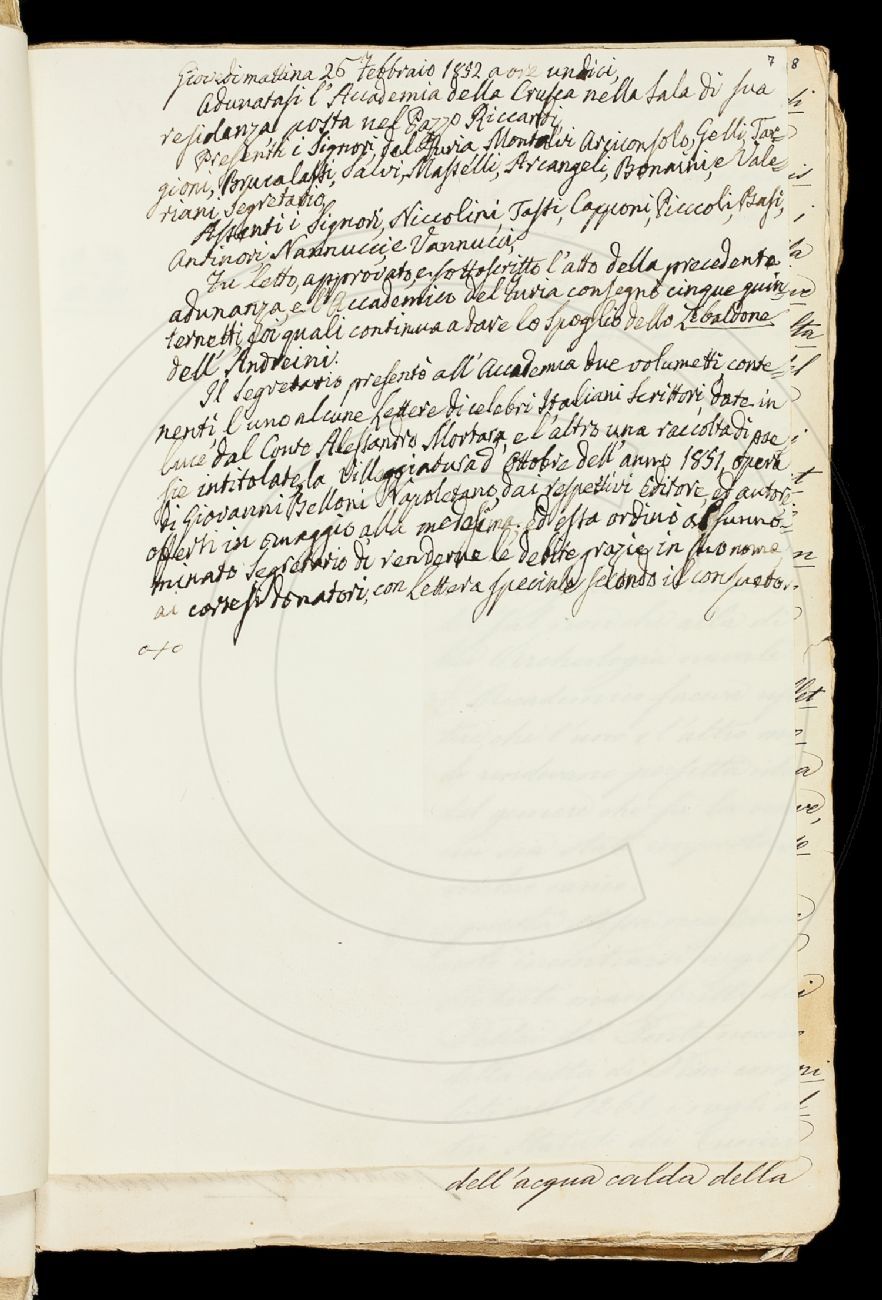 7 8
Giovedì mattina 26 Febbraio 1852 a ore undici,
Adunatasi l'Accademia della Crusca nella Sala di sua
residenza, posta nel Pazzo Riccardi,
Presenti i Signori, del Furia Montalvi Arciconsolo, Gelli, Tar=
gioni, Brucalassi, Salvi, Masselli, Arcangeli, Bonaini, e Vale=
riani Segretario,
Assenti i Signori, Niccolini, Tasti, Capponi, Piccoli, Basi,
Antinori, Nannucci, e Vannucci,
Fu letto, approvato, e sottoscritto l'atto della precedente
adunanza, e l'Accademico del Furia consegnò cinque quin=
ternetti, coi quali continua a dare lo spoglio dello Zibaldone
dell'Andreini.
Il Segretario presentò all'Accademia due volumetti, conte=
nenti, l'uno alcune Lettere di celebri Italiani Scrittori, date in
luce dal Conte Alessandro Mortara, e l'altro una raccolta di poe
sie intitolate la Villeggiatura d'Ottobre dell'anno 1851, opera
di Giovanni Belloni Napoletano, dai respettivi Editore, ed autore,
offerti in omaggio alla medesima, ed essa ordinò al sunno=
minato Segretario di renderne le debite grazie in suo nome
ai cortesi donatori, con Lettera speciale secondo il consueto.
dell'acqua calda della